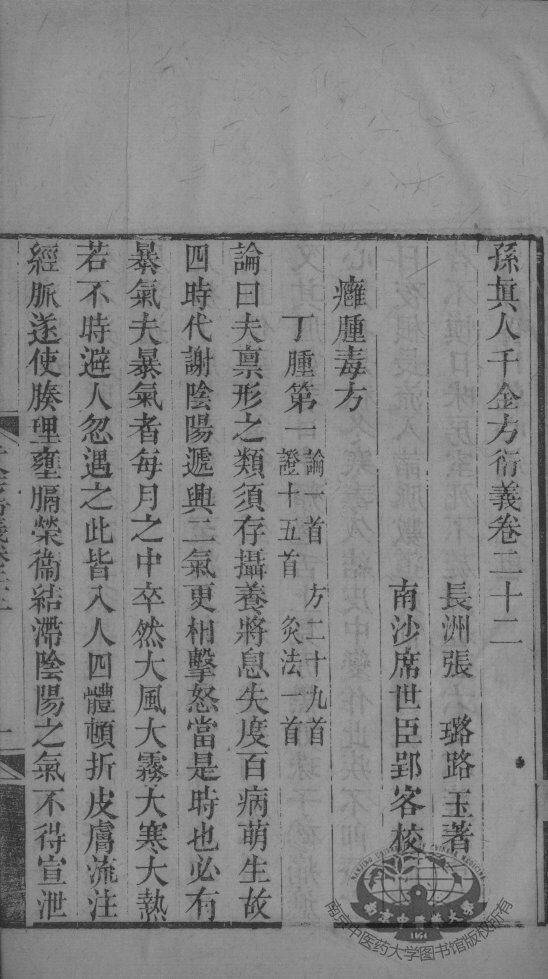 孫眞人千金方衍義卷二十二
長洲張　璐路玉著
南沙席世臣郢客校
癰腫毒方
丁腫第一 論一首　方二十九首 證十五首　灸法一首
論曰夫禀形之類須存攝養將息失度百病萌生故
四時代謝陰陽遞興二氣更相擊怒當是時也必有
暴氣夫暴氣者每月之中卒然大風大霧大寒大熱
若不時避人忽遇之此皆入人四體頓折皮膚流注
經脈遂使腠理壅膈榮衞結滯陰陽之氣不得宣泄
南京中医药大学图书馆版权所有
NANJING UNIVERSITY OF CHINESE MEDICINE
南京中醫藥大學
1954